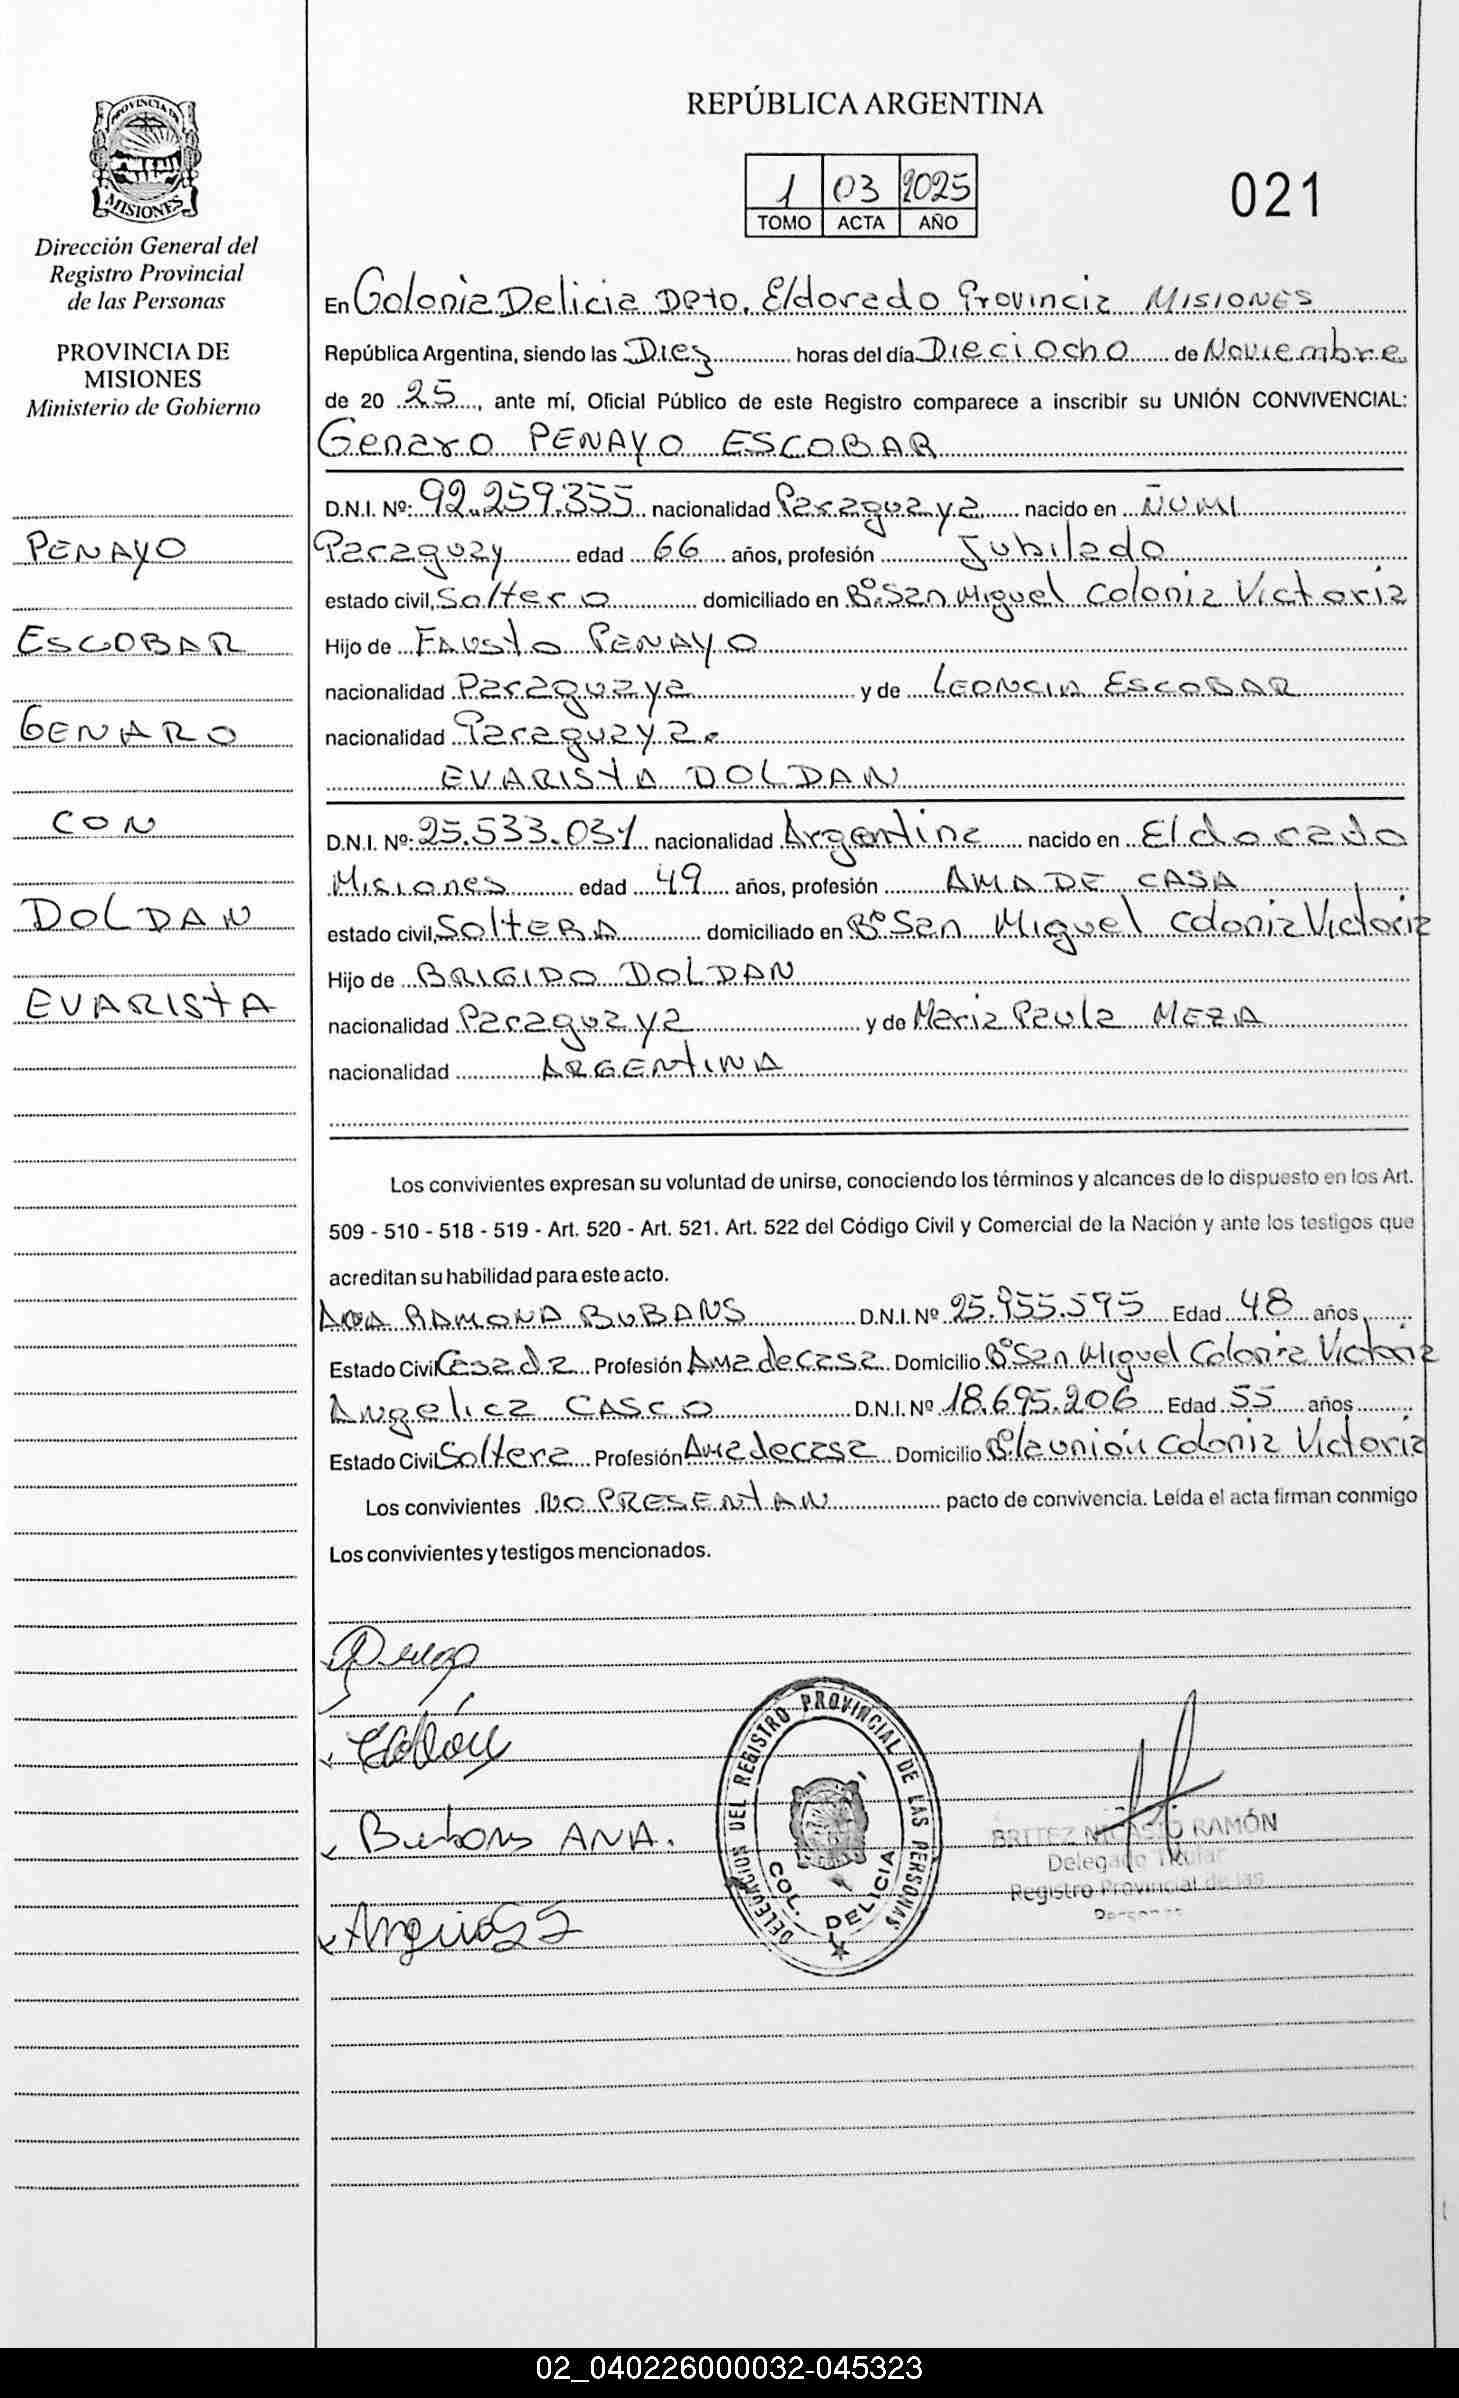 REPÚBLICA ARGENTINA
1 03 2025
TOMO ACTA AÑO
021
PROVINCIA DE
MISIONES
Dirección General del
Registro Provincial
de las Personas
PROVINCIA DE
MISIONES
Ministerio de Gobierno
PENAYO
ESCOBAR
GENARO
CON
DOLDAN
EVARISTA
En Colonia Delicia Dpto. Eldorado Provincia MISIONES
República Argentina, siendo las Diez horas del día Dieciocho de Noviembre
de 20 25, ante mí, Oficial Público de este Registro comparece a inscribir su UNIÓN CONVIVENCIAL:
Genaro PENAYO ESCOBAR
D.N.I. Nº: 92.259.355 nacionalidad Paraguaya nacido en ÑUMI
Paraguay edad 66 años, profesión Jubilado
estado civil, Soltero domiciliado en Bº San Miguel Colonia Victoria
Hijo de FAUSTO PENAYO
nacionalidad Paraguaya y de LEONCIA ESCOBAR
nacionalidad Paraguaya.
EVARISTA DOLDAN
D.N.I. Nº: 25.533.031 nacionalidad Argentina nacido en Eldorado
Misiones edad 49 años, profesión AMA DE CASA
estado civil, SOLTERA domiciliado en Bº San Miguel Colonia Victoria
Hijo de BRIGIDO DOLDAN
nacionalidad Paraguaya y de Maria Paula MEZA
nacionalidad ARGENTINA
Los convivientes expresan su voluntad de unirse, conociendo los términos y alcances de lo dispuesto en los Art.
509 - 510 - 518 - 519 - Art. 520 - Art. 521. Art. 522 del Código Civil y Comercial de la Nación y ante los testigos que
acreditan su habilidad para este acto.
ANA RAMONA BUBANS D.N.I. Nº 25.955.595 Edad 48 años,
Estado Civil Casada Profesión Ama de casa Domicilio Bº San Miguel Colonia Victoria
Angelica CASCO D.N.I. Nº 18.695.206 Edad 55 años
Estado Civil Soltera Profesión Ama de casa Domicilio Bº la unión Colonia Victoria
Los convivientes NO PRESENTAN pacto de convivencia. Leída el acta firman conmigo
Los convivientes y testigos mencionados.
ANA.
DELEGACION DEL REGISTRO PROVINCIAL DE LAS PERSONAS
COL. DELICIA
BRITEZ NICASIO RAMÓN
Delegado Titular
Registro Provincial de las
Personas
02_040226000032-045323